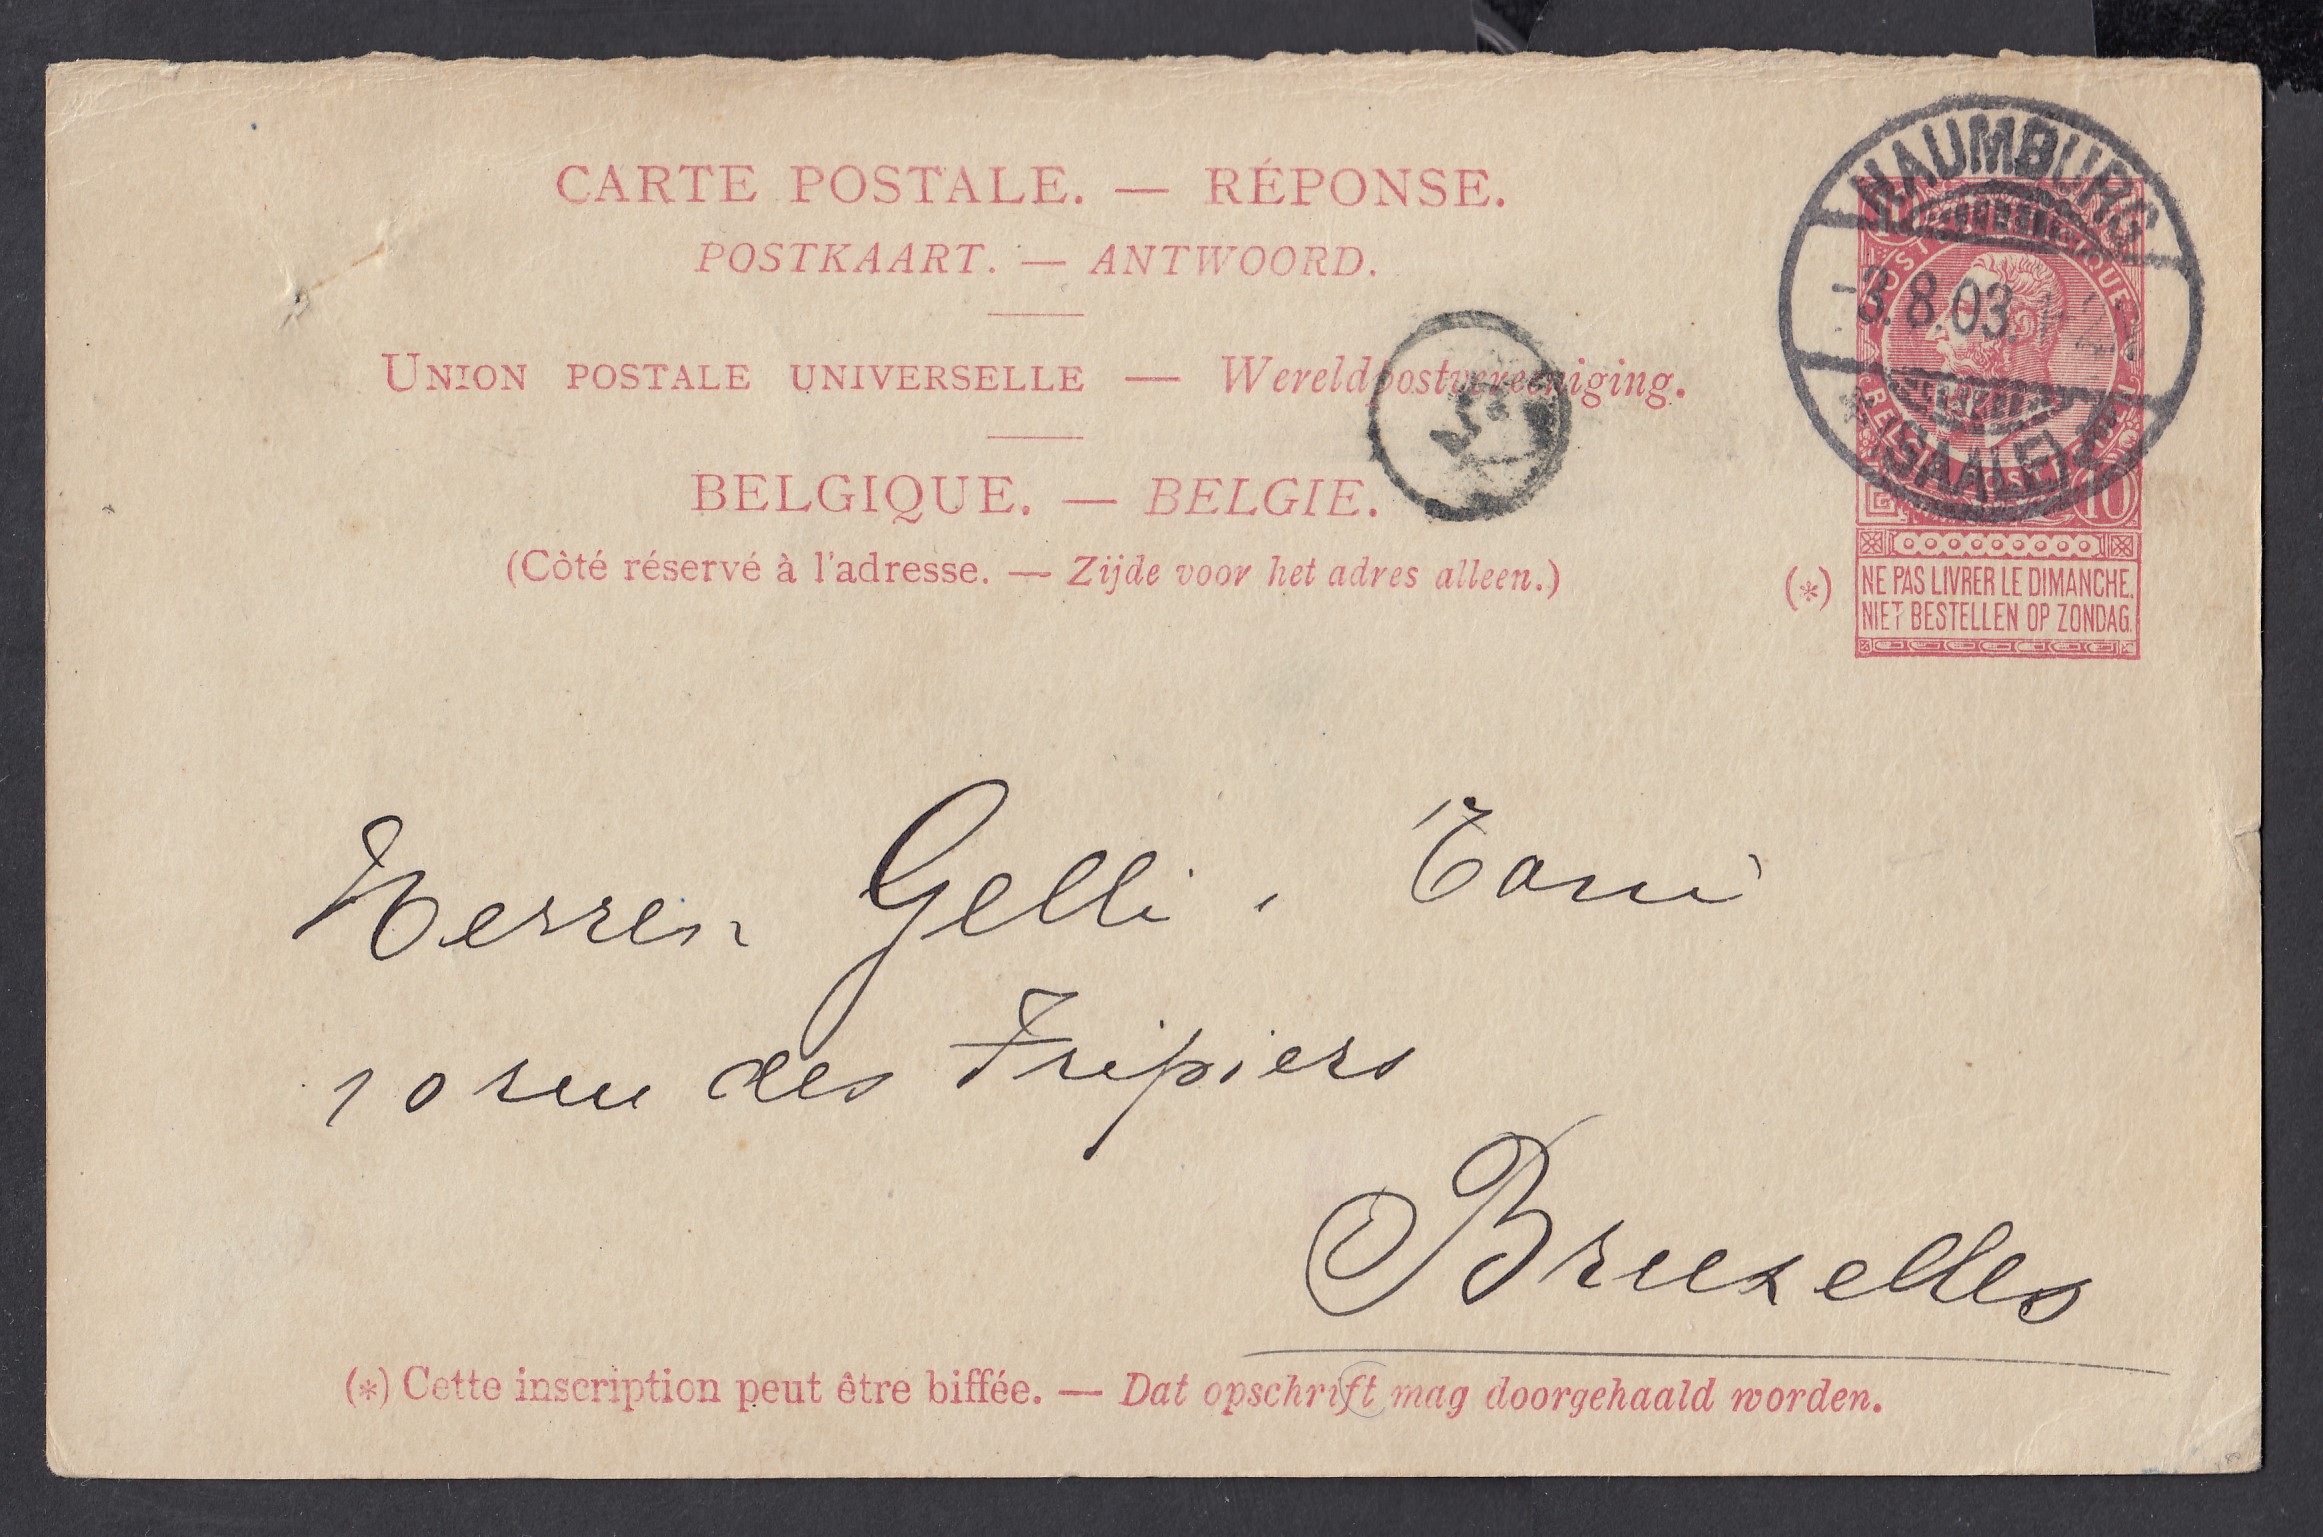 CARTE POSTALE. — RÉPONSE.
POSTKAART. — ANTWOORD.
UNION POSTALE UNIVERSELLE — Wereldpostvereeniging.
BELGIQUE. — BELGIE.
(Côté réservé à l'adresse. — Zijde voor het adres alleen.)
NAUMBURG
-3.8.03.
(SAALE)
10
(*)
NE PAS LIVRER LE DIMANCHE.
NIET BESTELLEN OP ZONDAG.
Herren Gelli, Tani
10 rue des Fripiers
Bruxelles
(*) Cette inscription peut être biffée. — Dat opschrift mag doorgehaald worden.